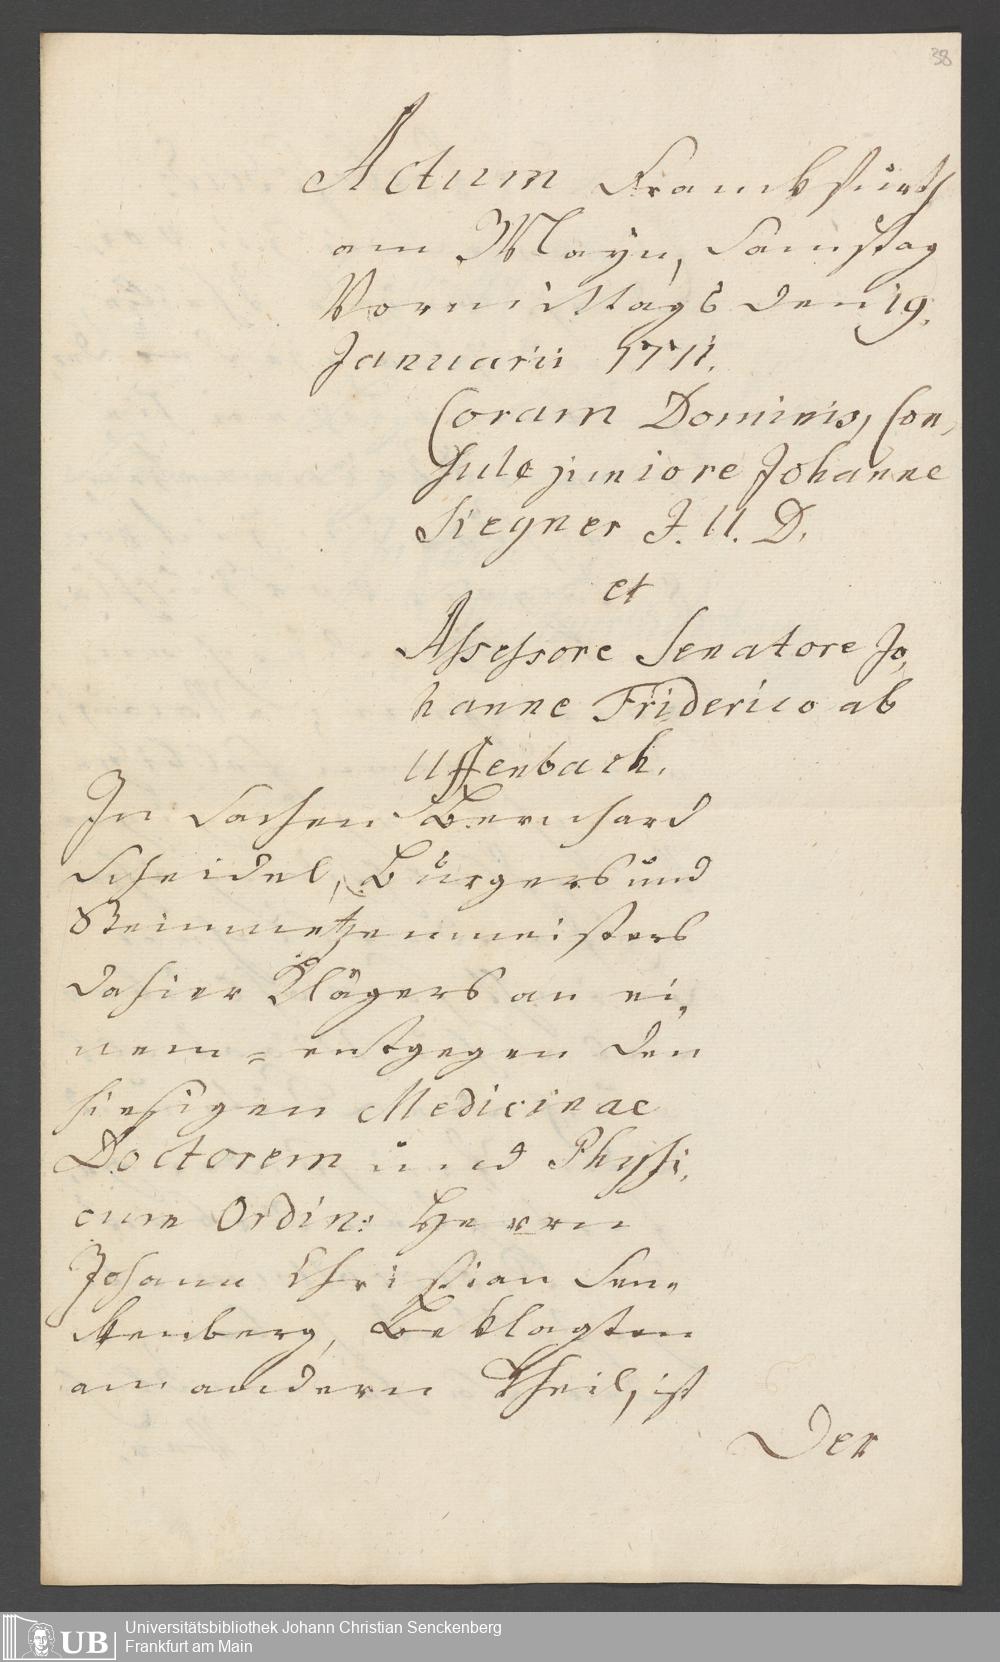 38
Actum Franckfurth
am Mayn, Samstag
Vormittags den 19.
Januarii 1771.
Coram Dominis, Con,
sule juniore Johanne
Siegner J. U. D.
et
Assessore Senatore Jo,
hanne Friderico ab
Uffenbach.
In Sachen Bernhard
Scheidel, Bürgers und
Steinmetzenmeisters
dahier Klägers an ei,
nem = entgegen den
hiesigen Medicinae
Doctorem und Physi,
cum Ordin: Herrn
Johann Christian Sen,
ckenberg, Beklagten
am andern Theil, ist
Der
UB
Universitätsbibliothek Johann Christian Senckenberg
Frankfurt am Main